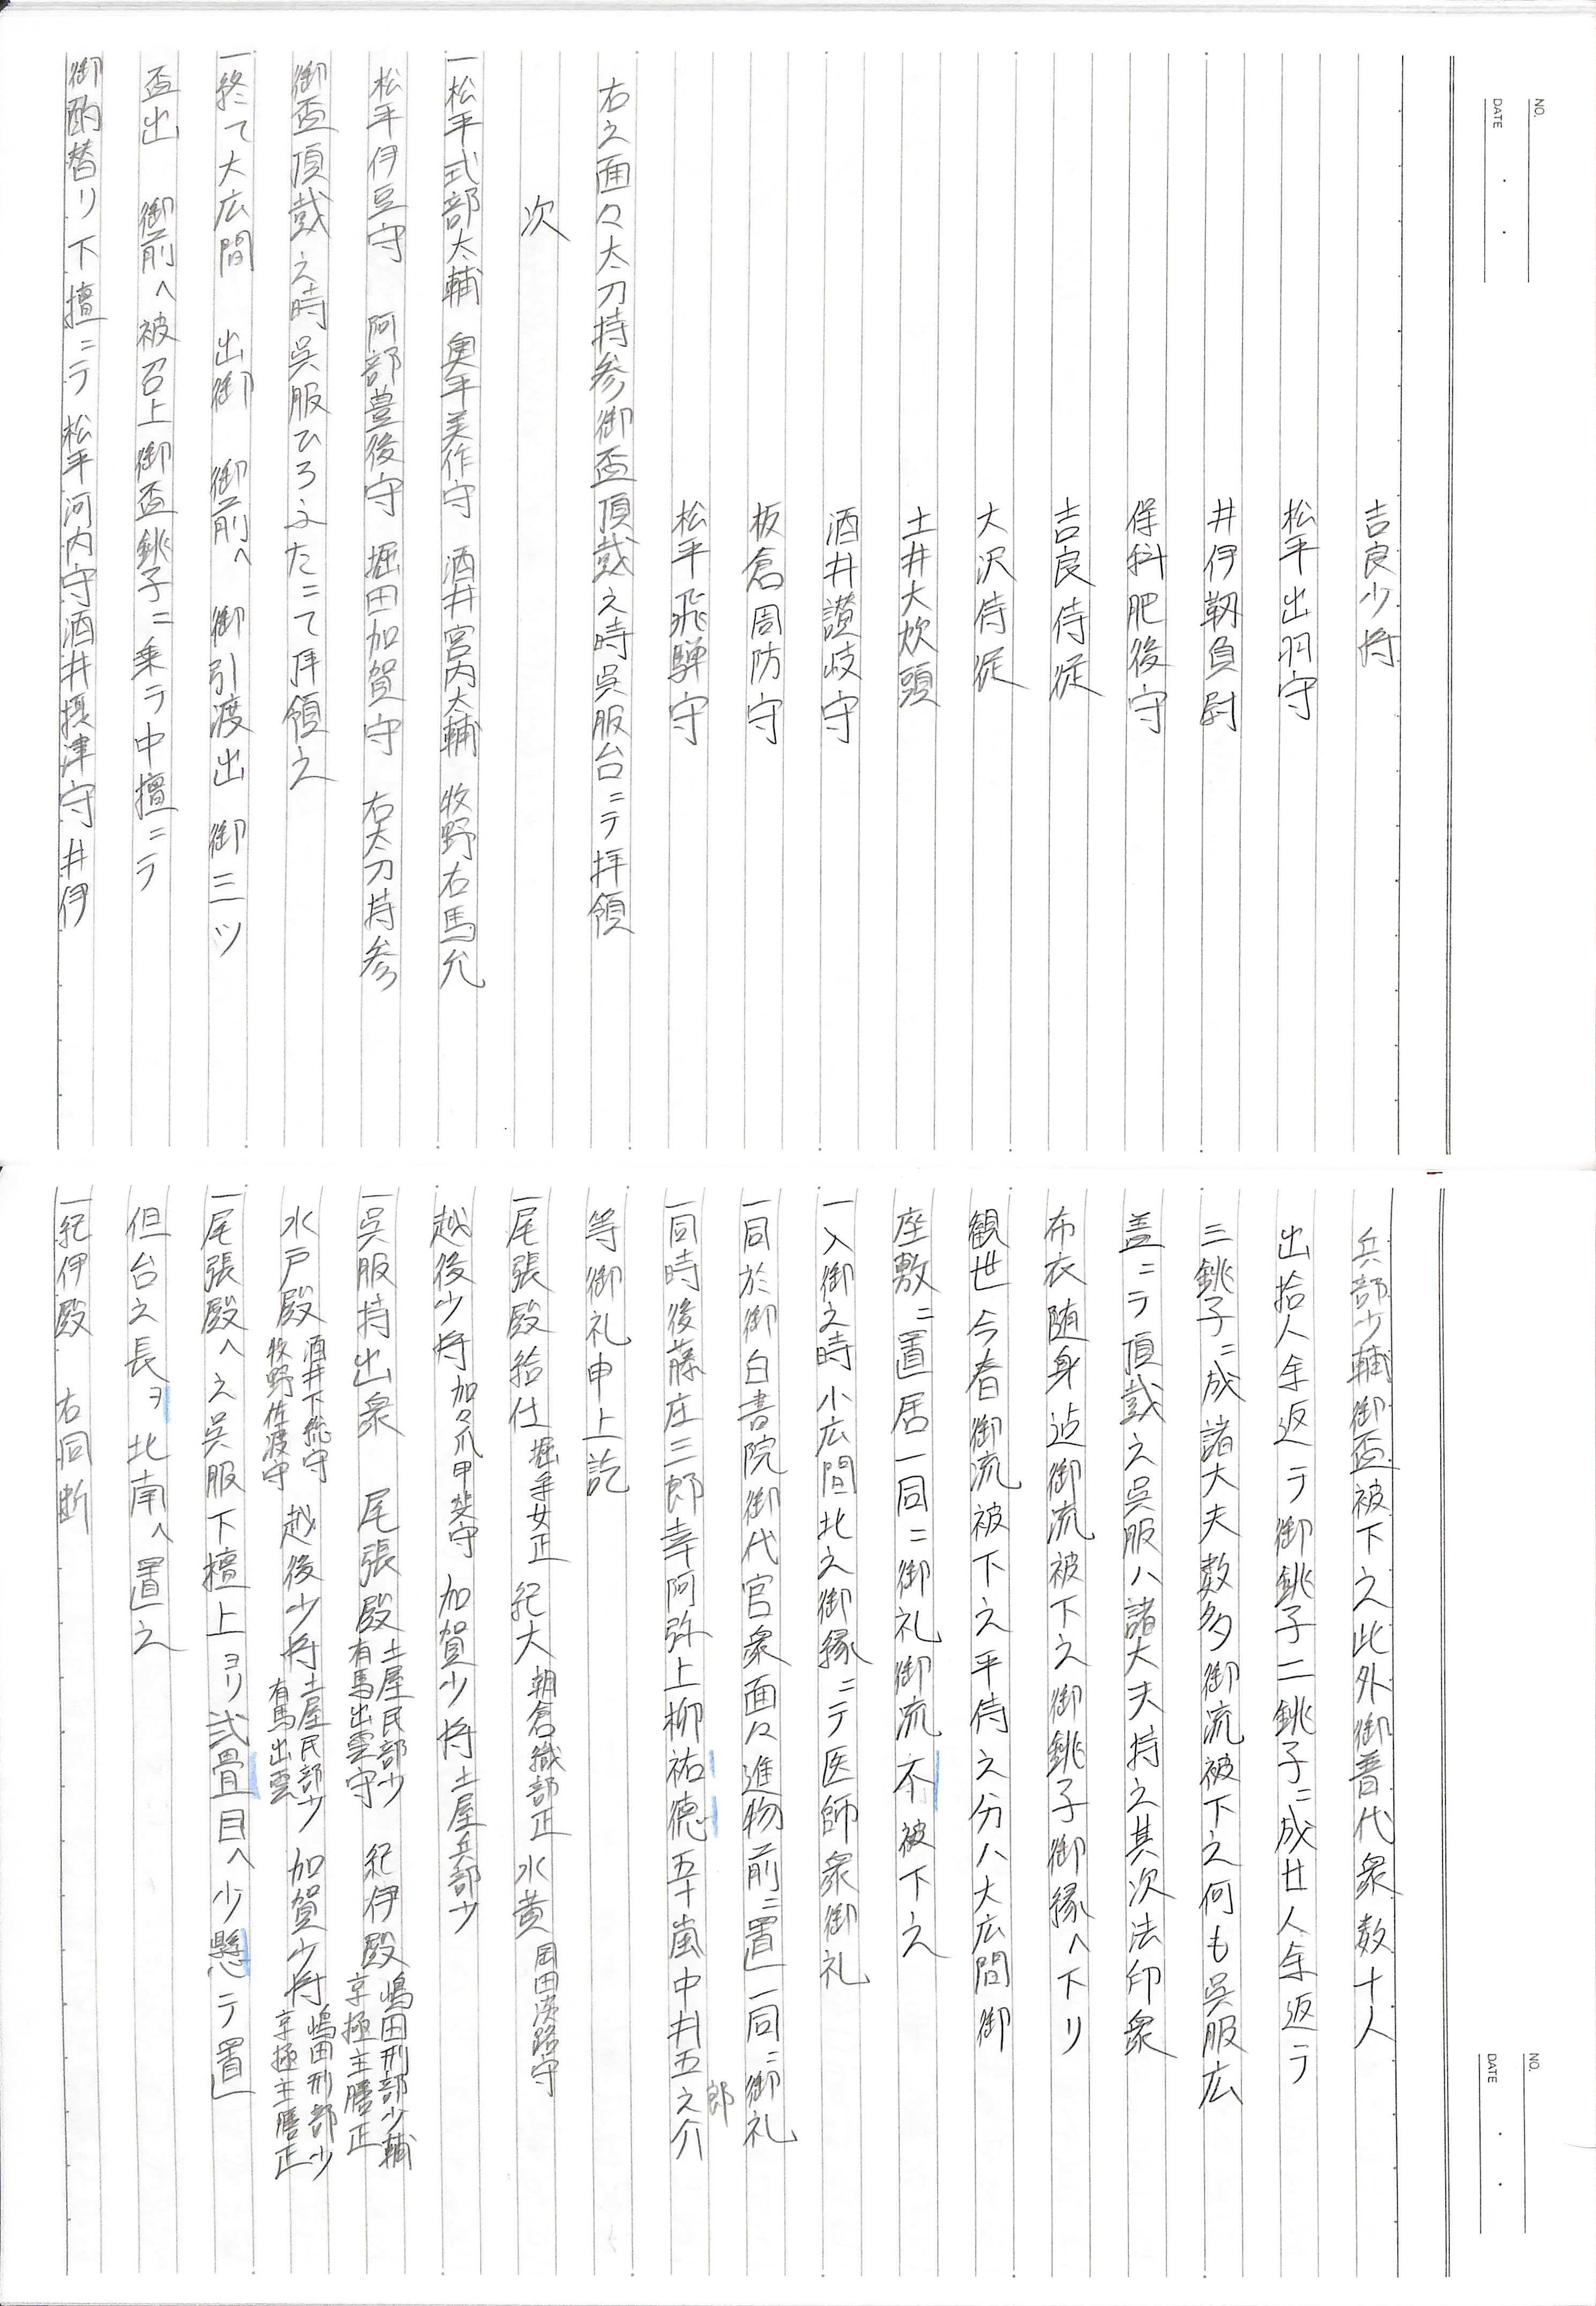 NO.
DATE
吉良少将
松平出羽守
井伊靱負尉
保科肥後守
吉良侍従
大沢侍従
土井大炊頭
酒井讃岐守
板倉周防守
松平飛騨守
右之面々太刀持参御盃頂戴之時呉服台ニテ拝領
次
一松平式部太輔 奥平美作守 酒井宮内大輔 牧野右馬允
松平伊豆守 阿部豊後守 堀田加賀守 右太刀持参
御盃頂戴之時呉服ひろふたニて拝領之
一終て大広間 出御 御前へ 御引渡出 御三ツ
盃出 御前へ被召上御盃銚子ニ乗テ中檀ニテ
御酌替リ下檀ニテ松平河内守酒井摂津守井伊
NO.
DATE
兵部少輔御盃被下之此外御普代衆数十人
出拾人余返テ御銚子二銚子ニ成廿人余返テ
三銚子ニ成諸大夫数多御流被下之何も呉服広
盖ニテ頂戴之呉服ハ諸大夫持之其次法印衆
布衣随身迠御流被下之御銚子御縁へ下リ
観世今春御流被下之平侍之分ハ大広間御
座敷ニ置居一同ニ御礼御流不被下之
一入御之時小広間北之御縁ニテ医師衆御礼
一同於御白書院御代官衆面々進物前ニ置一同ニ御礼
一同時後藤庄三郎幸阿弥上柳祐徳五十嵐中井五之介
郎
等御礼申上訖
一尾張殿給仕 堀采女正 紀大 朝倉織部正 水黄 岡田淡路守
越後少将 加々爪甲斐守 加賀少将 土屋兵部少
一呉服持出衆 尾張殿 土屋民部少 有馬出雲守 紀伊殿 嶋田刑部少輔 京極主膳正
水戸殿 酒井下総守 牧野佐渡守 越後少将 土屋民部少 有馬出雲 加賀少将 嶋田刑部少 京極主膳正
一尾張殿へ之呉服下檀上ヨリ弐畳目へ少懸テ置
但台之長ヲ北南へ置之
一紀伊殿 右同断